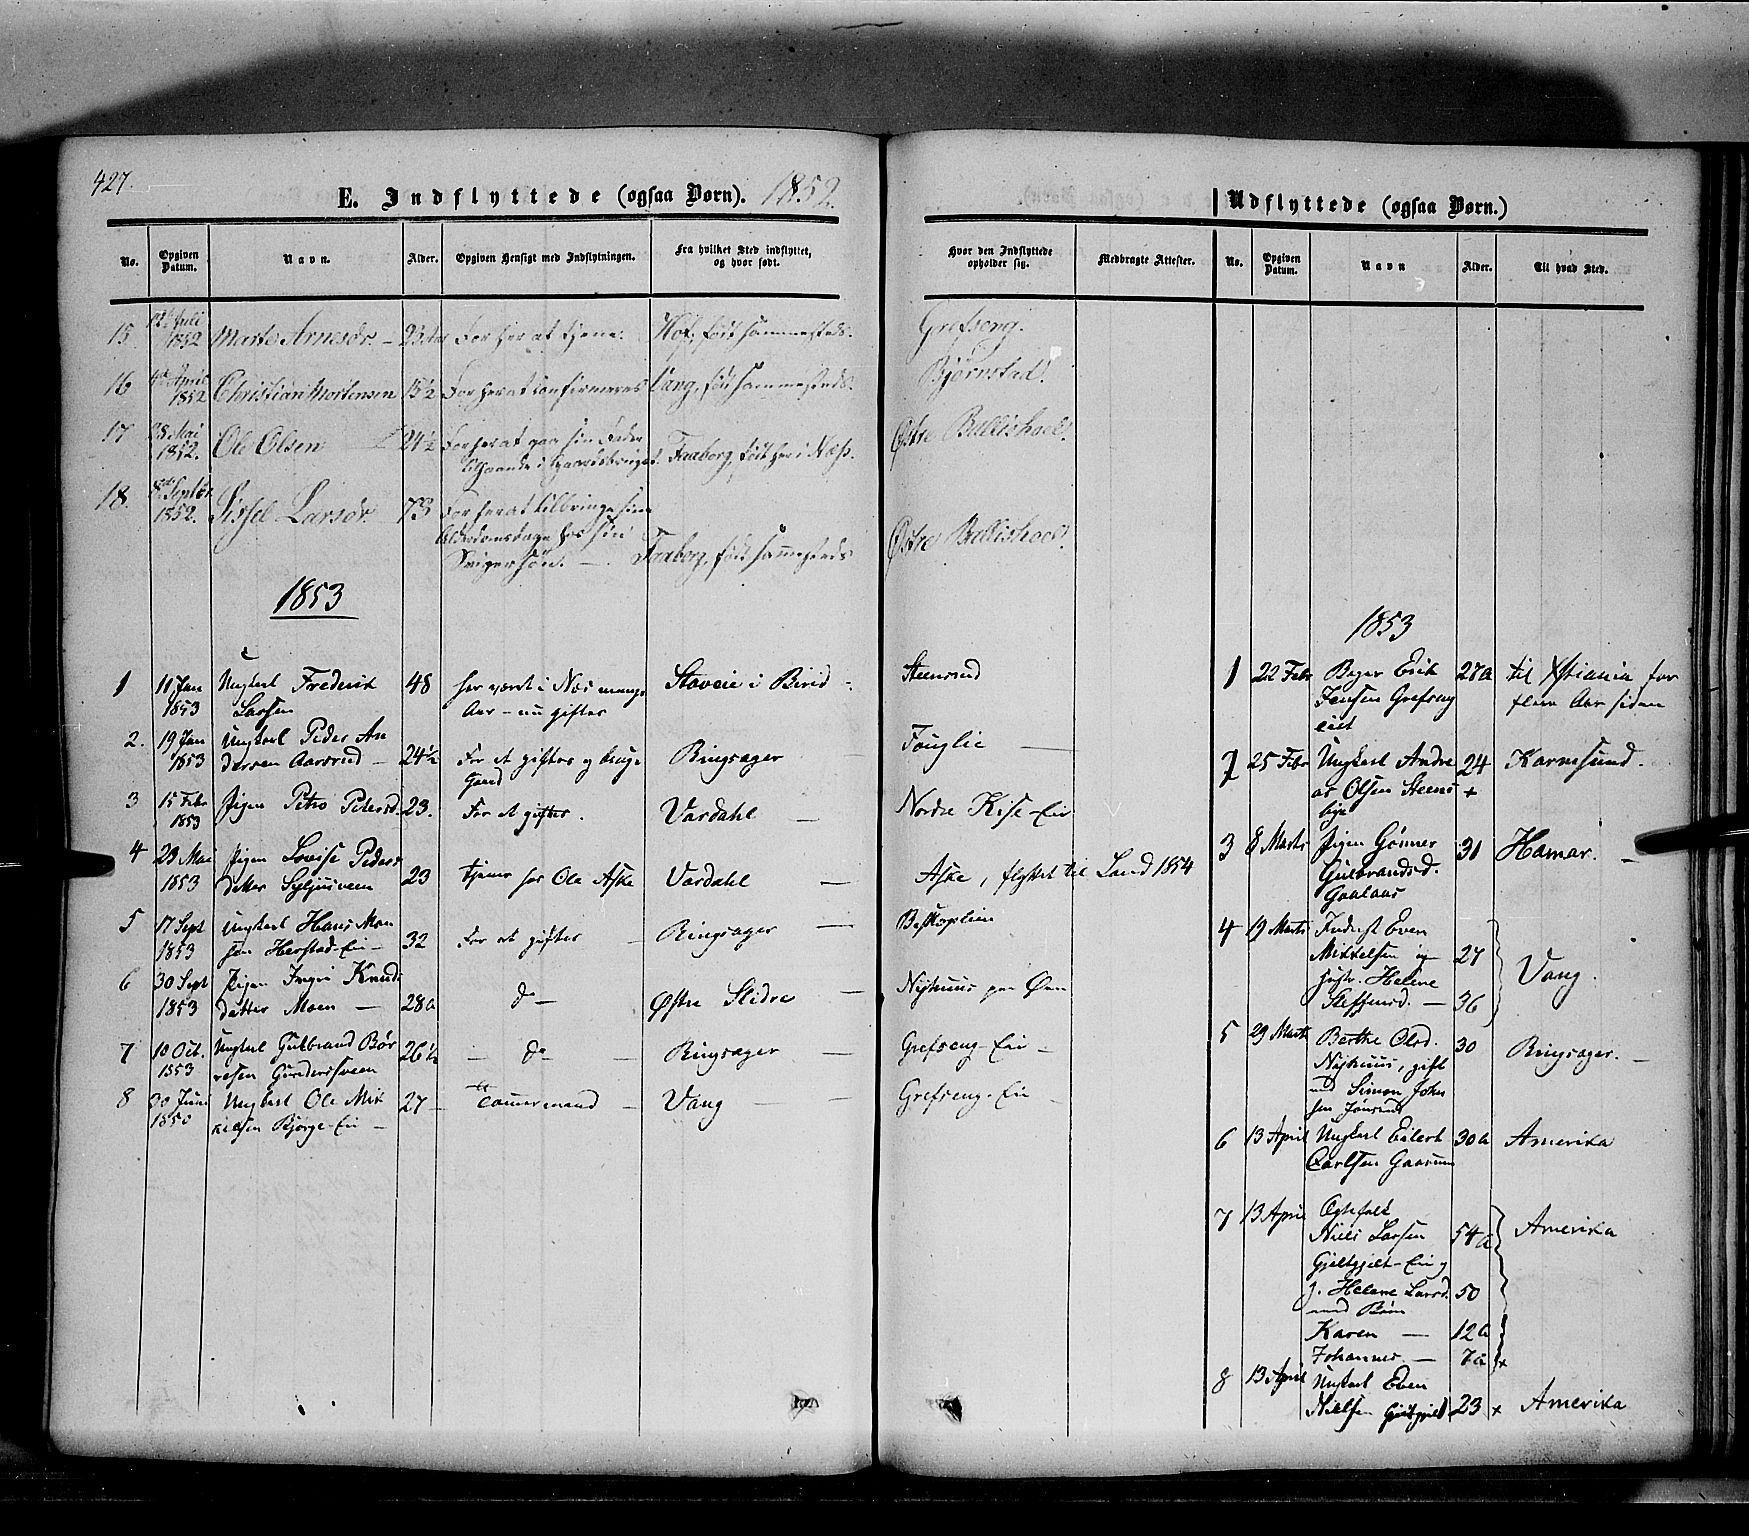 427.
E. Indflyttede (ogsaa Børn). 1852.
No. Opgiven Datum. Navn. Alder. Opgiven Hensigt med Indflytningen. Fra hvilket Sted indflyttet, og hvor født. Hvor den Indflyttede opholder sig. Medbragte Attester.
15 12te Juli 1852 Marte Arnesdr. 23 Aar For her at tjene. Hof, født sammesteds. Grefseng.
16 4de April 1852 Christian Mortensen 15½ For her at confirmeres Vang, født sammesteds. Bjørnstad.
17 28 Mai 1852. Ole Olsen 24½ For her at gaa sin Fader
tilhaande i Gaardsbruget. Faaborg, født her i Næss. Østre Ballishoel.
18. 8de Septbr 1852. Sissel Larsdr. 73 For her at tilbringe sine
Alderdomsdage hos sin
Svigersøn. — Faaborg, født sammesteds Østre Ballishoel.
1853
1 11 Jan 1853 Ungkarl Frederik
Larsen 48 har været i Næs mange
Aar - nu giftes Stoveie i Birid Steensrud
2. 19 Jan 1853 Ungkarl Peder An
dersen Aarsrud — 24½ For at giftes og bruge
Gaard Ringsager Fouglie —
3 15 Febr 1853 Pigen Petro Pedersd. 23. For at giftes. Vardahl — Nordre Kise-Eie
4 23 Mai 1853 Pigen Lovise Peders
datter Syljusveen 23 tjener hos Ole Aske Vardahl — Aske, flyttet til Land 1854
5 17 Sept 1853 Ungkarl Hans Mon
sen Herstad-Eie — 32 For at giftes — Ringsager —
6 30 Sept 1853 Pigen Ingri Knuds
datter Moen — 28a do — Østre Slidre — Nyhuus paa Øen
7 10 Oct. 1853 Ungkarl Gulbrand Bør
resen Gunderssveen 26½ — do — Ringsager — Grefseng-Eie —
8 30 Juni 1850 Ungkarl Ole Mik
kelsen Bjørge-Eie — 27 — Tømmermand — Vang — Grefseng-Eie —
Udflyttede (ogsaa Børn.)
No. Opgiven Datum. Navn Alder. Til hvad Sted.
1853
1 22 Febr Erik
Jensen Grefseng
eiet 27a til Xtiania for
flere Aar siden
2 25 Febr Ungkarl Andre
as Olsen Steens
bye 24 + Karmsund.
3 8 Marts Pigen Gønner
Gulbrandsd.
Gaalaas 31 Hamar. —
4 19 Marts Inderst Even
Mikkelsen og 27
Hustr. Helene
Steffensd. — 36 Vang.
5 29 Marts Berthe Olsd.
Nyhuus, gift
med Simon Johan
sen 30 Ringsager. —
6 13 April Ungkarl Eilert
Carlsen Gaarum 30a Amerika
7 13 April Ægtefolk
Niels Larsen 54a Amerika
Gjeltgjelt-Eie og
H. Helene Larsd. 50
med Børn
Karen — 12a
Johannes — 7a +
8 13 April Ungkarl Even
Nielsen 23 + Amerika